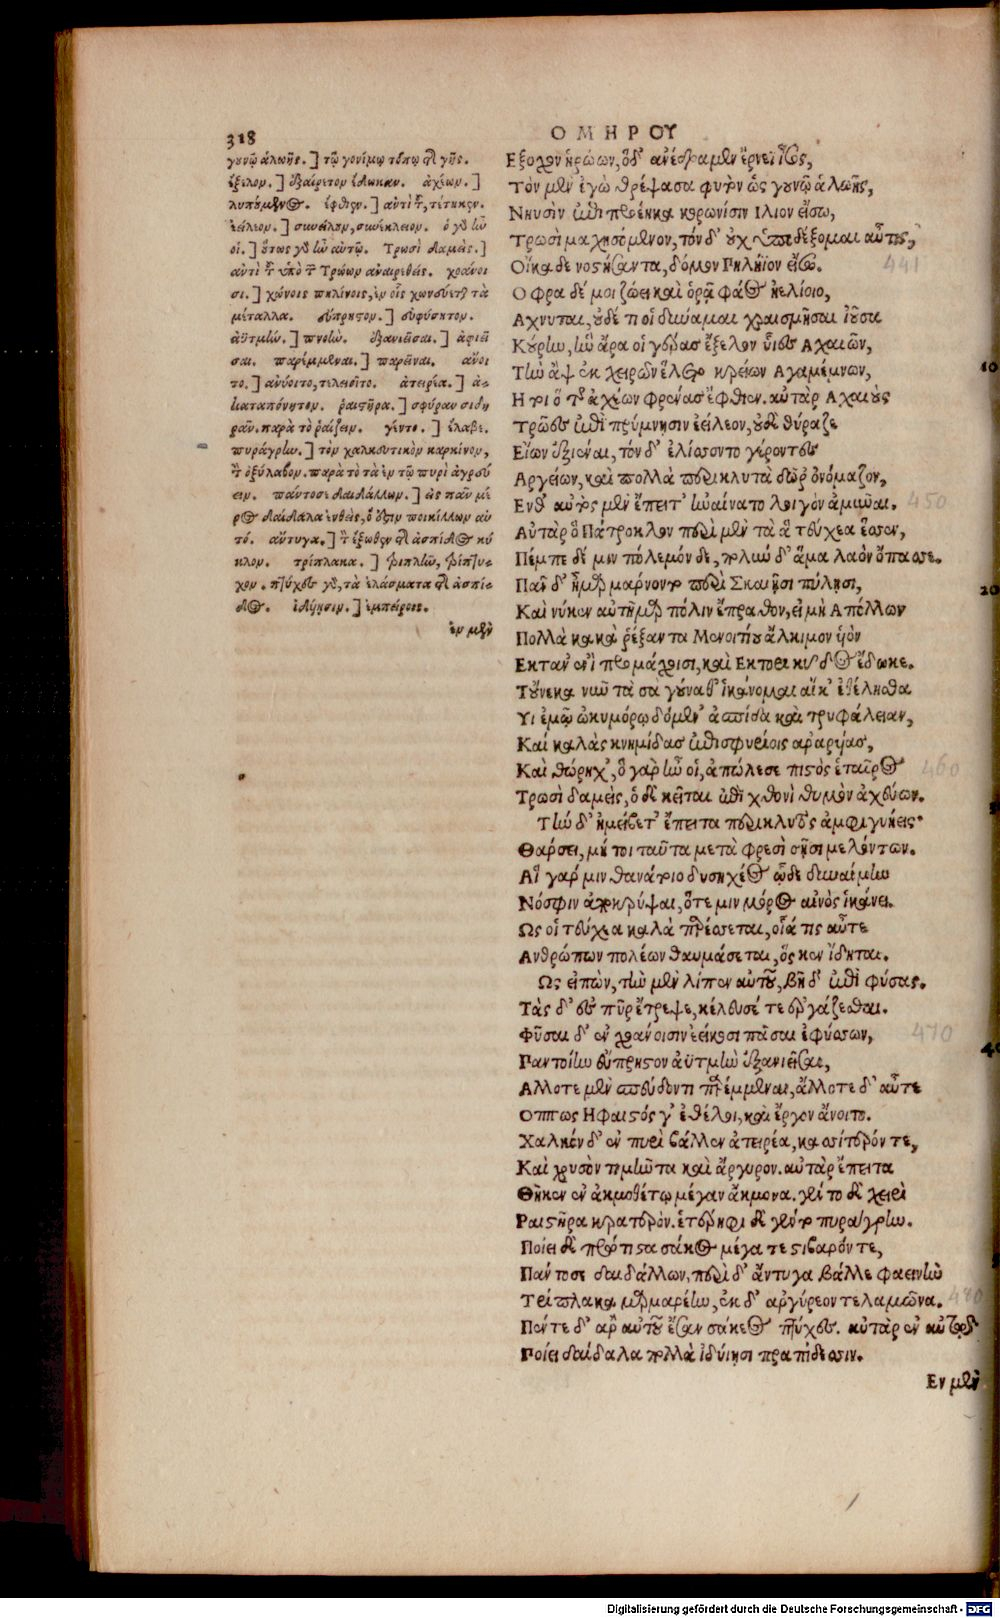 318
ΟΜΗΡΟΥ
γουνῷ ἁλωῆς.] τῷ γονίμῳ τόπῳ τῆς γῆς.
ἔξελον.] ἐξαίρετον ἔδωκαν. ἀχέων.]
λυπούμενος. ἔφθιεν.] ἀντὶ τοῦ,
ἐείλεον.] συνείλουν, συνέκλειον. ὃ γὰρ ἦν
οἱ.] οὕτως γὰρ ἦν αὐτῷ. Τρωσὶ δαμείς.]
ἀντὶ τοῦ ὑπὸ τῶν Τρώων ἀναιρεθείς. χοάνοι
σι.] χώνοις πηλίνοις, ἐν οἷς χωνεύεται τὰ
μέταλλα. εὔπρηστον.] εὐφύσητον.
ἀϋτμὴν.] πνοὴν. ἐξανιεῖσαι.] ἀφιεῖ
σαι. παρέμμεναι.] παρεῖναι. ἄνοι
το.] ἀνύοιτο, τελειοῖτο. ἀτειρέα.] ἀ-
καταπόνητον. ῥαιστῆρα.] σφύραν σιδη
ρᾶν. παρὰ τὸ ῥαίζειν. γέντο.] ἔλαβε.
πυράγρην.] τὸν χαλκευτικὸν καρκίνον,
τὸν ὀξύλαβον. παρὰ τὸ τὰ ἐν τῷ πυρὶ ἀγρεύ
ειν. πάντοσε δαιδάλλων.] εἰς πᾶν μέ
ρος δαίδαλα ἐνθεὶς, ὅ ἐστιν ποικίλλων αὐ
τό. ἄντυγα.] τὸν ἔξωθεν τῆς ἀσπίδος κύ
κλον. τρίπλακα.] τριπλῆν, τρίπτυ-
χον. πτύχες γὰρ, τὰ ἐλάσματα τῆς ἀσπί-
δος. ἰδυίῃσιν.] ἐμπείροις.
ἐν μὲν
Εξοχον ἡρώων, ὅδ' ἀνέδραμεν ἔρνεϊ ἶσος,
Τὸν μὲν ἐγὼ θρέψασα φυτὸν ὡς γουνῷ ἁλωῆς,
Νηυσὶν ἐπὶ προέηκα κορωνίσιν Ιλιον εἴσω,
Τρωσὶ μαχησόμενον, τόν δ' οὐχ ὑποδέξομαι αὖτις,
Οἴκαδε νοστήσαντα, δόμον Πηλήϊον εἴσω. 441
Οφρα δέ μοι ζώει καὶ ὁρᾷ φάος ἠελίοιο,
Αχνυται, οὐδέ τι οἱ δύναμαι χραισμῆσαι ἰοῦσα
Κούρην, ἣν ἄρα οἱ γέρας ἔξελον υἷες Αχαιῶν,
Τὴν ἂψ ἐκ χειρῶν ἕλετο κρείων Αγαμέμνων,
Ητοι ὁ τῆς ἀχέων φρένας ἔφθιεν. αὐτὰρ Αχαιοὺς
Τρῶες ἐπὶ πρύμνησιν ἐείλεον, οὐδὲ θύραζε
Εἴων ἐξιέναι, τόν δ' ἐλίσσοντο γέροντες
Αργείων, καὶ πολλὰ περικλυτὰ δῶρ' ὀνόμαζον,
Ενθ' αὐτὸς μὲν ἔπειτ' ἠναίνατο λοιγὸν ἀμῦναι. 450
Αὐτὰρ ὁ Πάτροκλον περὶ μὲν τὰ ἃ τεύχεα ἕσσεν,
Πέμπε δέ μιν πόλεμόνδε, πολὺν δ' ἅμα λαὸν ὄπασσε.
Πᾶν δ' ἦμαρ μάρναντο περὶ Σκαιῇσι πύλῃσι,
Καὶ νύκεν αὐτῆμαρ πόλιν ἔπραθον, εἰ μὴ Απόλλων
Πολλὰ κακὰ ῥέξαντα Μενοιτίου ἄλκιμον υἱὸν
Εκταν' ἐνὶ προμάχοισι, καὶ Εκτορι κῦδος ἔδωκε.
Τοὔνεκα νῦν τὰ σὰ γούναθ' ἱκάνομαι αἴ κ' ἐθέλησθα
Υι ἐμῷ ὠκυμόρῳ δόμεν' ἀσπίδα καὶ τρυφάλειαν,
Καὶ καλὰς κνημῖδας ἐπισφυρίοις ἀραρυίας,
Καὶ θώρηχ', ὃ γὰρ ἦν οἱ, ἀπώλεσε πιστὸς ἑταῖρος 460
Τρωσὶ δαμείς, ὁ δὲ κεῖται ἐπὶ χθονὶ θυμὸν ἀχεύων.
Τὴν δ' ἠμείβετ' ἔπειτα περικλυτὸς ἀμφιγυήεις·
Θάρσει, μή τοι ταῦτα μετὰ φρεσὶ σῇσι μελόντων.
Αἲ γάρ μιν θανάτοιο δυσηχέος ὧδε δυναίμην
Νόσφιν ἀποκρύψαι, ὅτε μιν μόρος αἰνὸς ἱκάνει.
Ως οἱ τεύχεα καλὰ παρέσσεται, οἷά τις αὖτε
Ανθρώπων πολέων θαυμάσεται, ὅς κεν ἴδηται.
Ως εἰπὼν, τὴν μὲν λίπεν αὐτοῦ, βῆ δ' ἐπὶ φύσας.
Τὰς δ' ἐς πῦρ ἔτρεψε, κέλευσέ τε ἐργάζεσθαι.
Φῦσαι δ' ἐν χοάνοισιν ἐείκοσι πᾶσαι ἐφύσων, 470
Παντοίην εὔπρηστον ἀϋτμὴν ἐξανιεῖσαι,
Αλλοτε μὲν σπεύδοντι παρέμμεναι, ἄλλοτε δ' αὖτε
Οππως Ηφαιστός γ' ἐθέλοι, καὶ ἔργον ἄνοιτο.
Χαλκὸν δ' ἐν πυρὶ βάλλεν ἀτειρέα, κασσίτερόν τε,
Καὶ χρυσὸν τιμῆντα καὶ ἄργυρον. αὐτὰρ ἔπειτα
Θῆκεν ἐν ἀκμοθέτῳ μέγαν ἄκμονα. γέντο δὲ χειρὶ
Ραιστῆρα κρατερὸν. ἑτέρηφι δὲ γέντο πυράγρην.
Ποίει δὲ πρώτιστα σάκος μέγα τε στιβαρόν τε,
Πάντοσε δαιδάλλων, περὶ δ' ἄντυγα βάλλε φαεινὴν
Τρίπλακα μαρμαρέην, ἐκ δ' ἀργύρεον τελαμῶνα. 480
Πέντε δ' ἄρ' αὐτοῦ ἔσαν σάκεος πτύχες. αὐτὰρ ἐν αὐτῷ
Ποίει δαίδαλα πολλὰ ἰδυίῃσι πραπίδεσσιν.
Εν μὲν
10
20
Digitalisierung gefördert durch die Deutsche Forschungsgemeinschaft - DFG